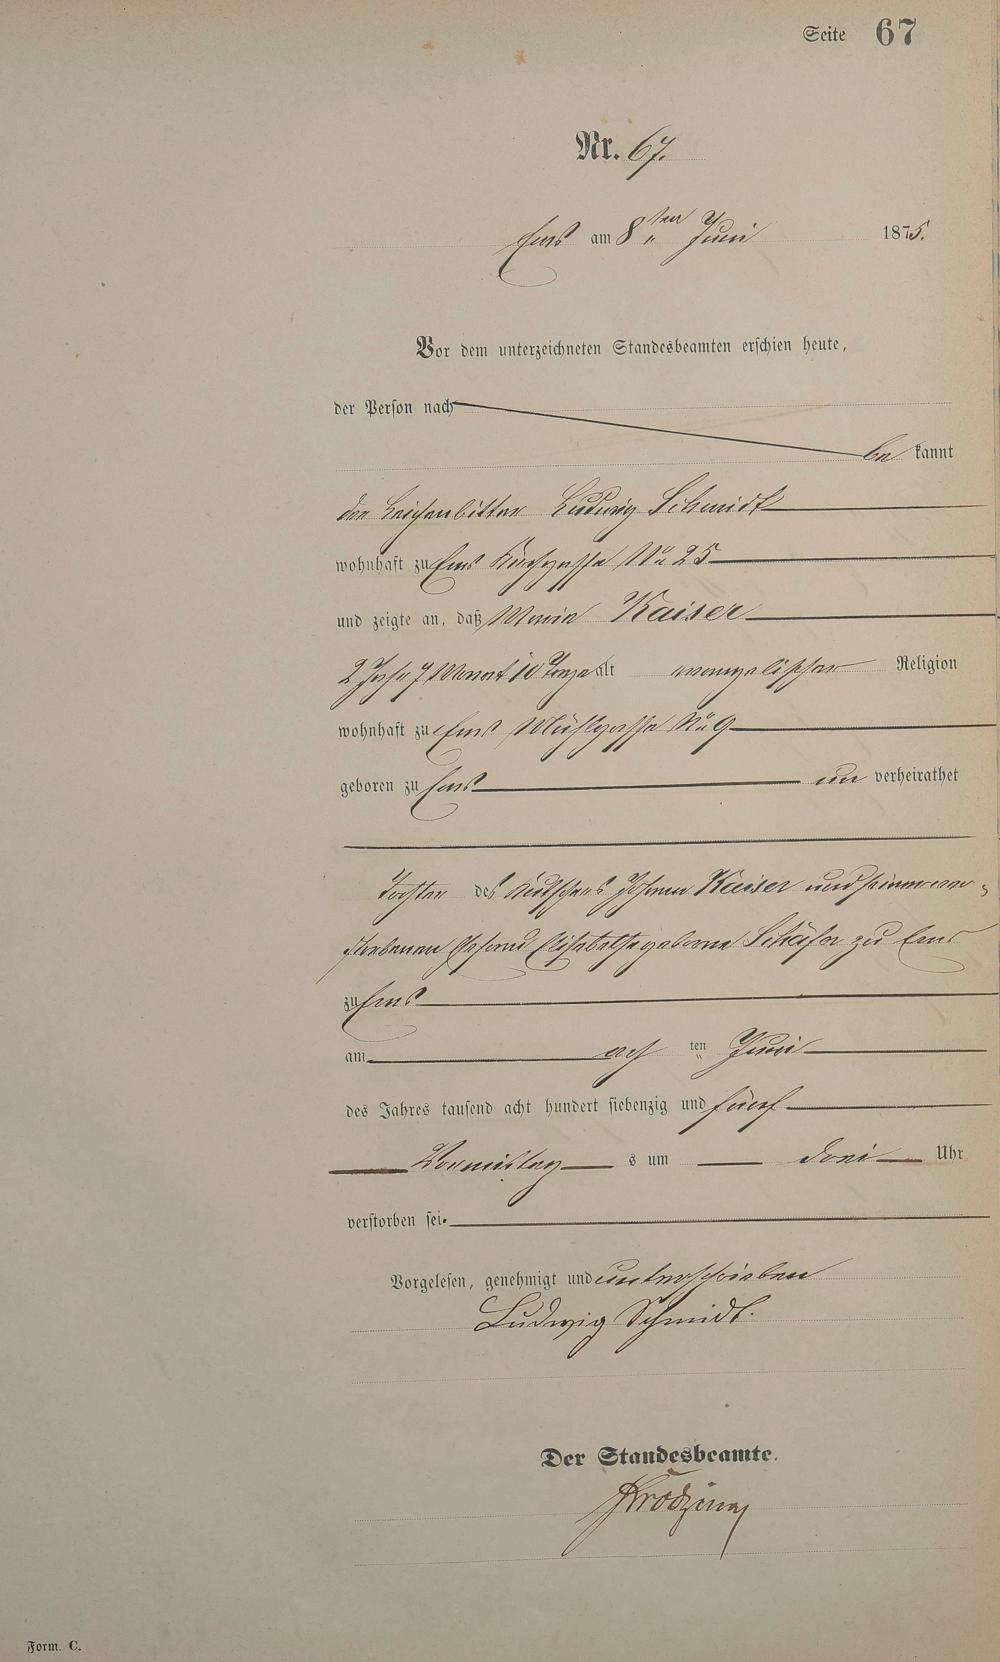 Seite 67
Nr. 67.
Ems am 8ten Juni 1875.
Vor dem unterzeichneten Standesbeamten erschien heute,
der Person nach
be kannt
der Leichenbitter Ludwig Schmidt
wohnhaft zu Ems Kirchgasse No 25
und zeigte an, daß Maria Kaiser
2 Jahr 7 Monat 10 Tage alt evangelischer Religion
wohnhaft zu Ems Mühlgasse No 9
geboren zu Ems un verheirathet
Tochter des Kutschers Johann Kaiser und seiner ver-
storbenen Ehefrau Elisabethe geborne Schäfer zu Ems
zu Ems
am acht ten Juni
des Jahres tausend acht hundert siebenzig und fünf
Vormittag s um drei Uhr
verstorben sei.
Vorgelesen, genehmigt und unterschrieben
Ludwig Schmidt.
Der Standesbeamte.
Form. C.